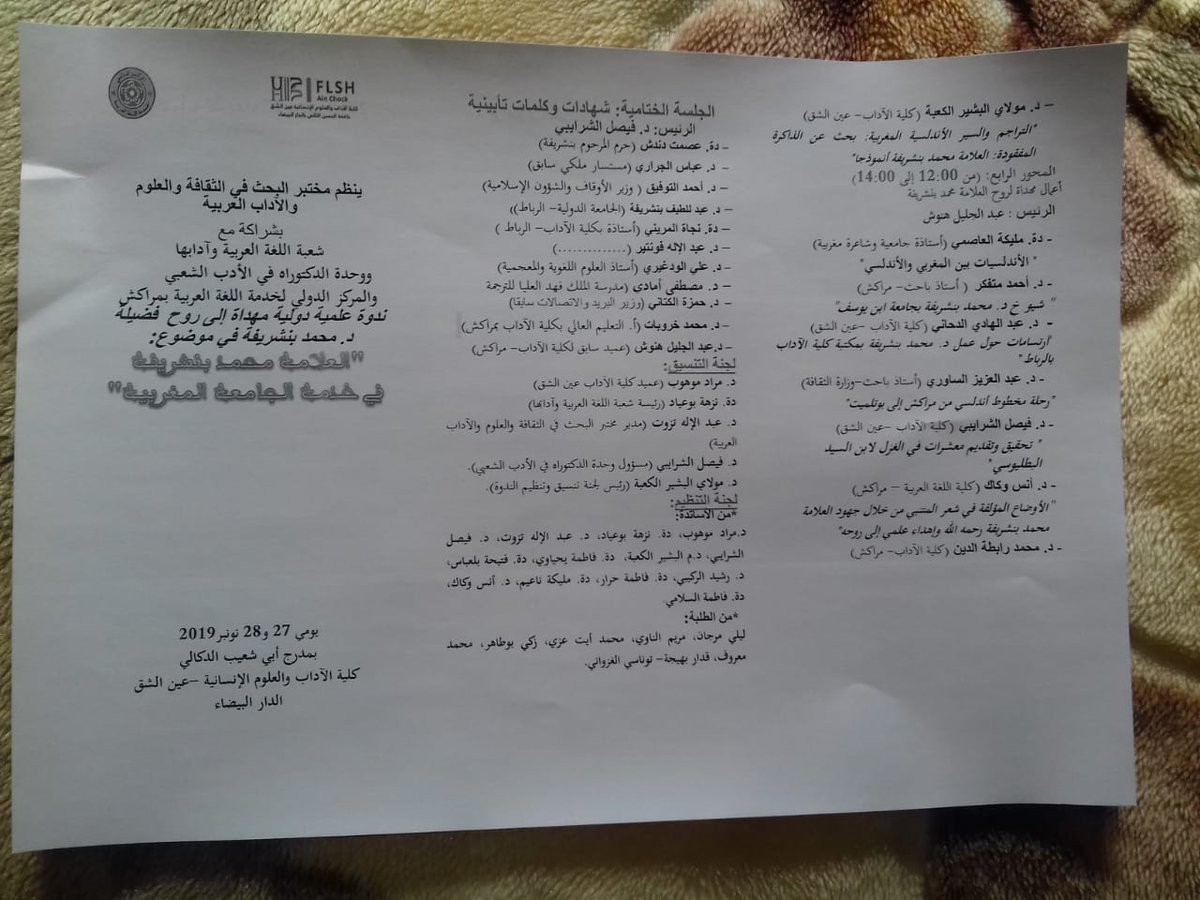 – د. مولاي البشير الكعبة (كلية الآداب- عين الشق)
"التراجم والسير الأندلسية المغربية: بحث عن الذاكرة
المفقودة: العلامة محمد بنشريفة أنموذجا"
المحور الرابع: (من 12:00 إلى 14:00)
أعمال مهداة لروح العلامة محمد بنشريفة
الرئيس : عبد الجليل هنوش
- دة. مليكة العاصمي (أستاذة جامعية وشاعرة مغربية)
" الأندلسيات بين المغربي والأندلسي"
- د. أحمد متفكر ( أستاذ باحث- مراكش)
" شيوخ د. محمد بنشريفة بجامعة ابن يوسف"
- د. عبد الهادي الدحاني (كلية الآداب -عين الشق)
"ارتسامات حول عمل د. محمد بنشريفة بمكتبة كلية الآداب
بالرباط"
- د. عبد العزيز الساوري (أستاذ باحث-وزارة الثقافة)
"رحلة مخطوط أندلسي من مراكش إلى بوتلميت"
- د. فيصل الشرايبي (كلية الآداب -عين الشق)
" تحقيق وتقديم معشرات في الغزل لابن السيد
البطليوسي"
- د. أنس وكاك (كلية اللغة العربية – مراكش)
"الأوضاع المؤلفة في شعر المتنبي من خلال جهود العلامة
محمد بنشريفة رحمه الله وإهداء علمي إلى روحه"
- د. محمد رابطة الدين (كلية الآداب- مراكش)
الجلسة الختامية: شهادات وكلمات تأبينية
الرئيس: د. فيصل الشرايبي
– دة. عصمت دندش (حرم المرحوم بنشريفة)
– د. عباس الجراري (مستشار ملكي سابق)
– د. أحمد التوفيق ( وزير الأوقاف والشؤون الإسلامية)
– د. عبد اللطيف بنشريفة (الجامعة الدولية- الرباط))
– دة. نجاة المريني (أستاذة بكلية الآداب- الرباط )
– د. عبد الإله فونتير (.............)
– د. علي الودغيري (أستاذ العلوم اللغوية والمعجمية)
– د. مصطفى أمادي (مدرسة الملك فهد العليا للترجمة
– د. حمزة الكتاني (وزير البريد والاتصالات سابقا)
– د. محمد خروبات (أ. التعليم العالي بكلية الآداب بمراكش)
– د.عبد الجليل هنوش (عميد سابق لكلية الآداب- مراكش)
لجنة التنسيق:
د. مراد موهوب (عميد كلية الآداب عين الشق)
دة. نزهة بوعياد (رئيسة شعبة اللغة العربية وآدابها)
د. عبد الإله تزوت (مدير مختبر البحث في الثقافة والعلوم والآداب
العربية)
د. فيصل الشرايبي (مسؤول وحدة الدكتوراه في الأدب الشعبي).
د. مولاي البشير الكعبة (رئيس لجنة تنسيق وتنظيم الندوة).
لجنة التنظيم:
*من الأساتذة:
د.مراد موهوب، دة. نزهة بوعياد، د. عبد الإله تزوت، د. فيصل
الشرايبي، د.م البشير الكعبة، دة. فاطمة يحياوي، دة. فتيحة بلعباس،
د. رشيد الركيبي، دة. فاطمة حرار، دة. مليكة ناعيم، د. أنس وكاك،
دة. فاطمة السلامي.
*من الطلبة:
ليلي مرجان، مريم الناوي، محمد أيت عزي، زكي بوطاهر، محمد
معروف، قدار بهيجة- توناسي الغزواني.
FLSH
Ain Chock
كلية الآداب والعلوم الإنسانية عين الشق
جامعة الحسن الثاني بالدار البيضاء
ينظم مختبر البحث في الثقافة والعلوم
والآداب العربية
بشراكة مع
شعبة اللغة العربية وآدابها
ووحدة الدكتوراه في الأدب الشعبي
والمركز الدولي لخدمة اللغة العربية بمراكش
ندوة علمية دولية مهداة إلى روح فضيلة
د. محمد بنشريفة في موضوع:
"العلامة محمد بنشريفة
في خدمة الجامعة المغربية"
يومي 27 و28 نونبر 2019
بمدرج أبي شعيب الدكالي
كلية الآداب والعلوم الإنسانية -عين الشق
الدار البيضاء